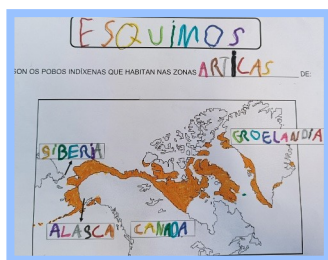 ESQUIMOS
SON OS POBOS INDÍXENAS QUE HABITAN NAS ZONAS ARTICAS DE:
GROELANDIA
SIBERIA
ALASCA
CANADA